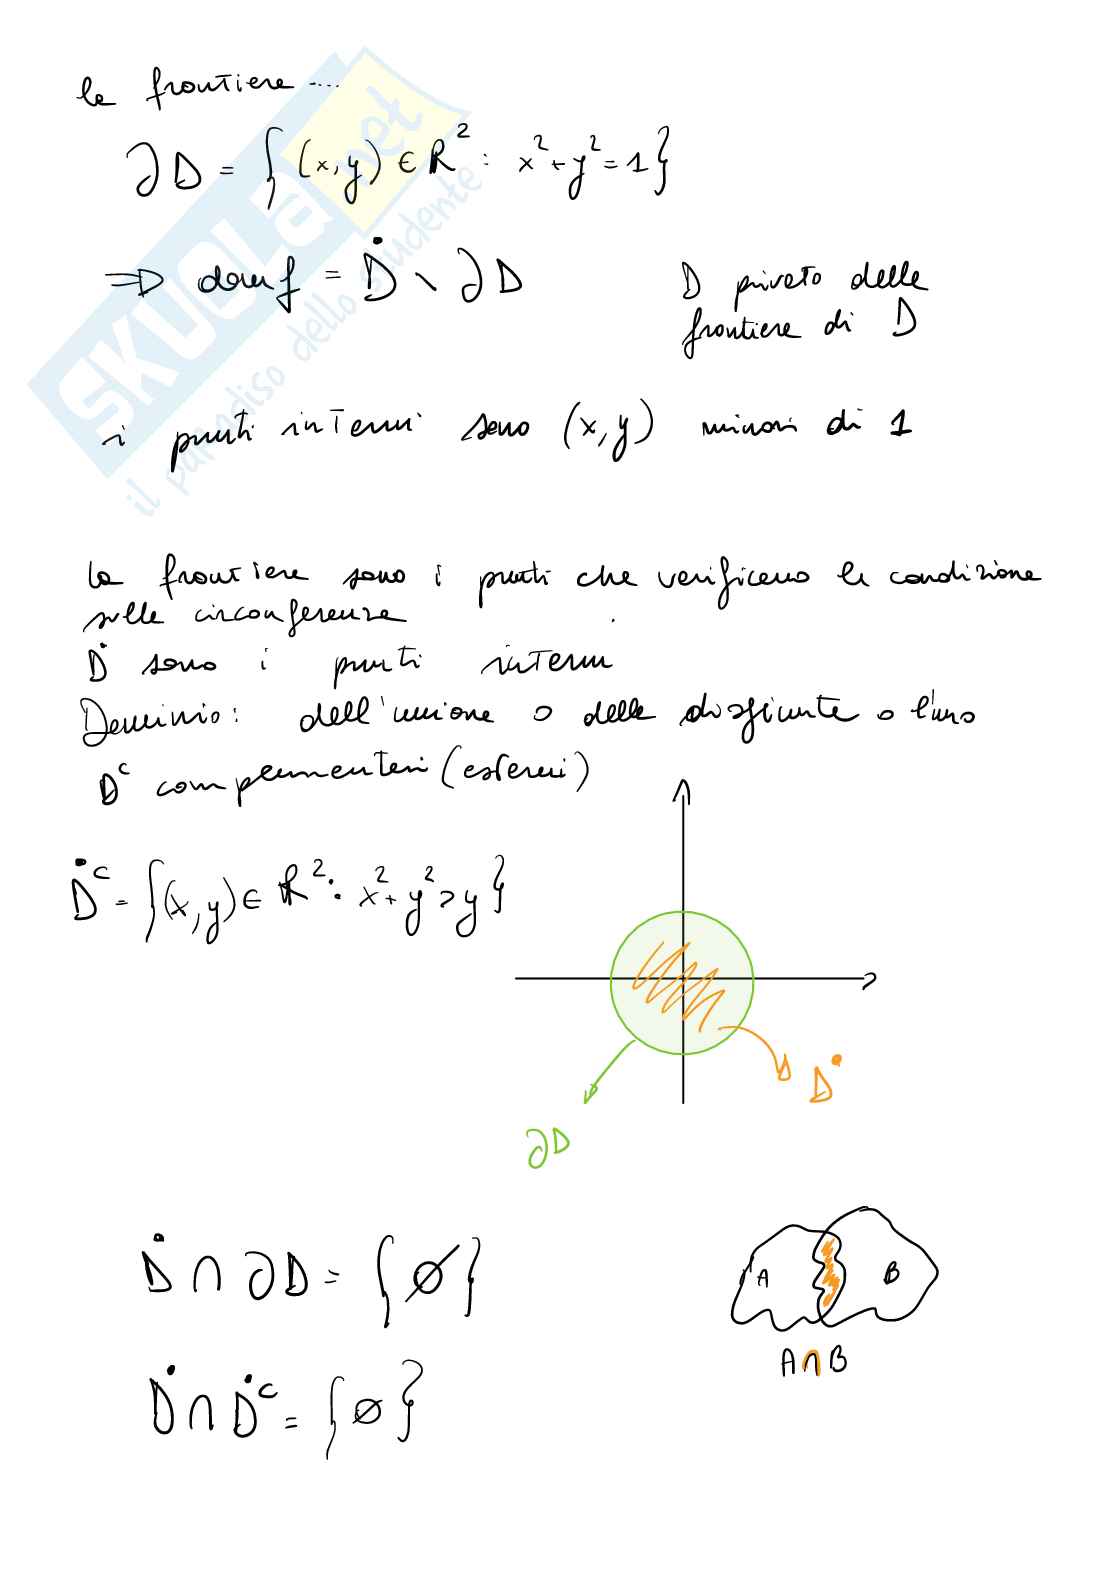 la frontiera ....
∂D = {(x,y) ∈ R² : x²+y²=1}
⇒ domf = Ḋ \ ∂D
D privato della
frontiera di D
i punti interni sono (x,y) minori di 1
la frontiera sono i punti che verificano la condizione
sulla circonferenza
Ḋ sono i punti interni
Dominio: dell'unione o delle disgiunte o l'uno
Dᶜ complementari (esterni)
Ḋᶜ = {(x,y) ∈ R² : x²+y²>y}
Ḋ
∂D
Ḋ ∩ ∂D = {∅}
A B
A∩B
Ḋ ∩ Ḋᶜ = {∅}
SKUOLA.net
il paradiso dello studente